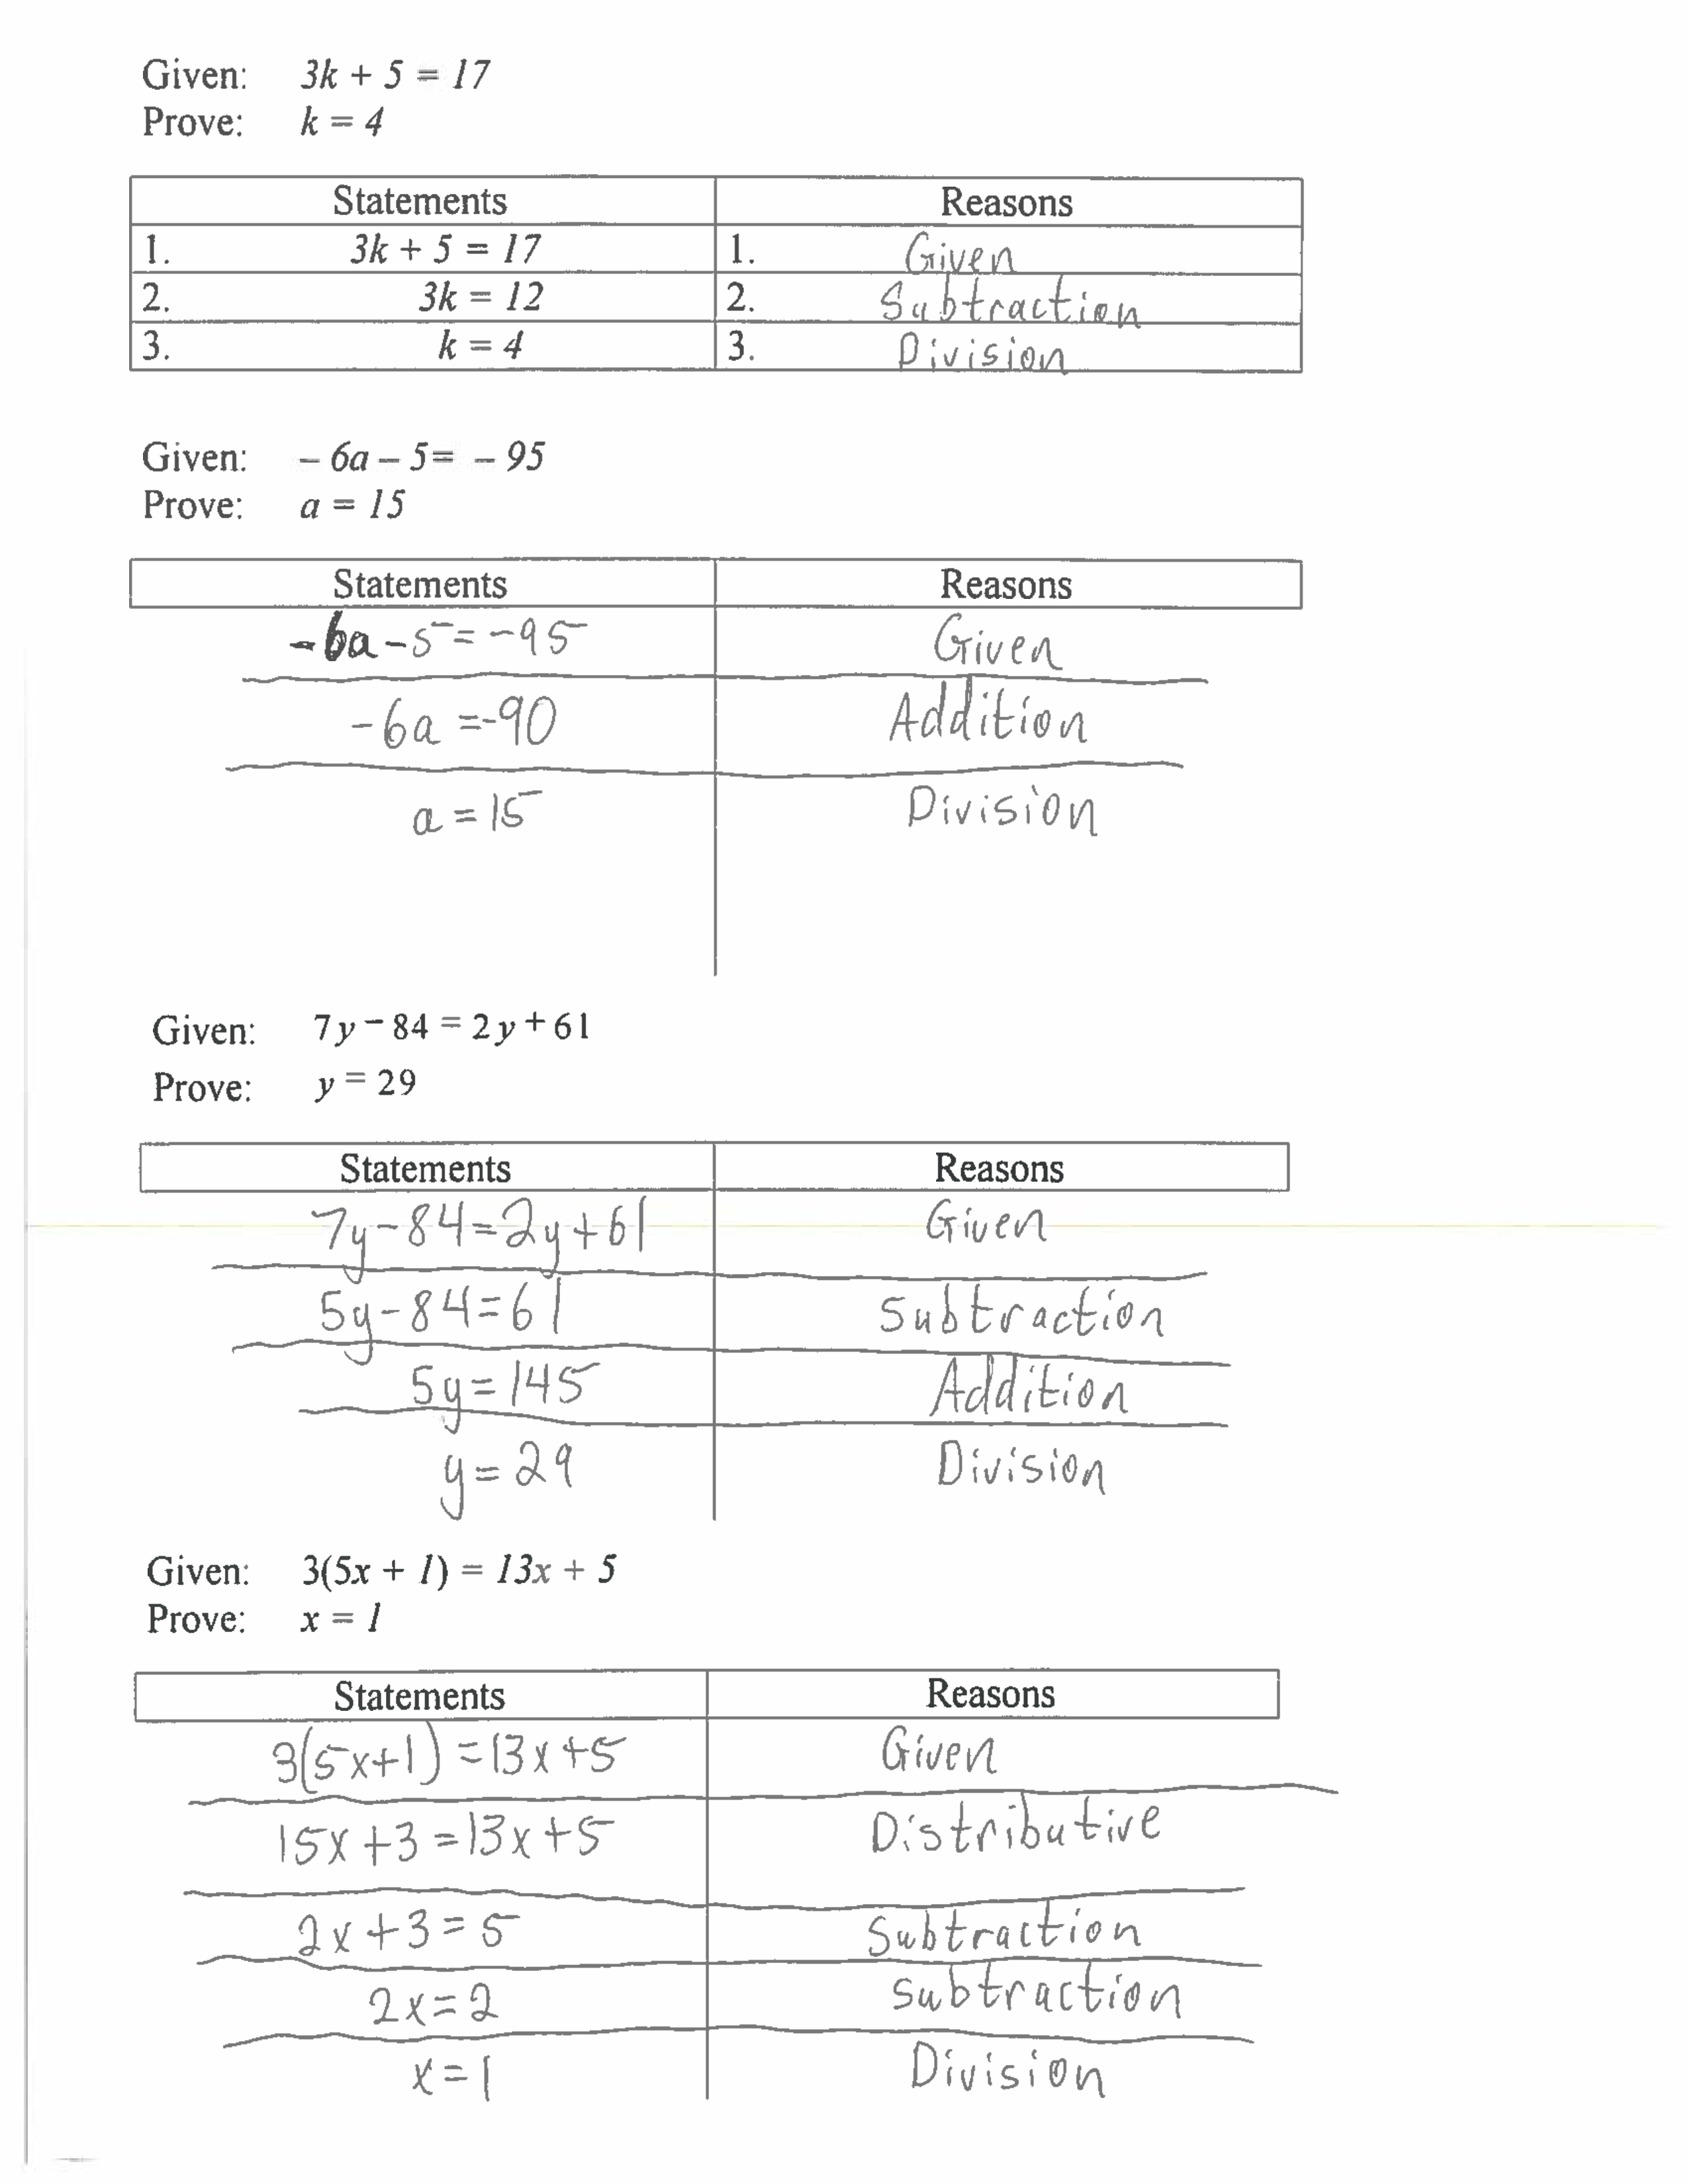 Given: 3k + 5 = 17
Prove: k = 4
Statements Reasons
1. 3k + 5 = 17 1. Given
2. 3k = 12 2. Subtraction
3. k = 4 3. Division
Given: – 6a – 5= – 95
Prove: a = 15
Statements Reasons
-6a-5=-95 Given
-6a=-90 Addition
a=15 Division
Given: 7y−84=2y+61
Prove: y=29
Statements Reasons
7y-84=2y+61 Given
5y-84=61 Subtraction
5y=145 Addition
y=29 Division
Given: 3(5x + 1) = 13x + 5
Prove: x = 1
Statements Reasons
3(5x+1)=13x+5 Given
15x+3=13x+5 Distributive
2x+3=5 Subtraction
2x=2 Subtraction
x=1 Division